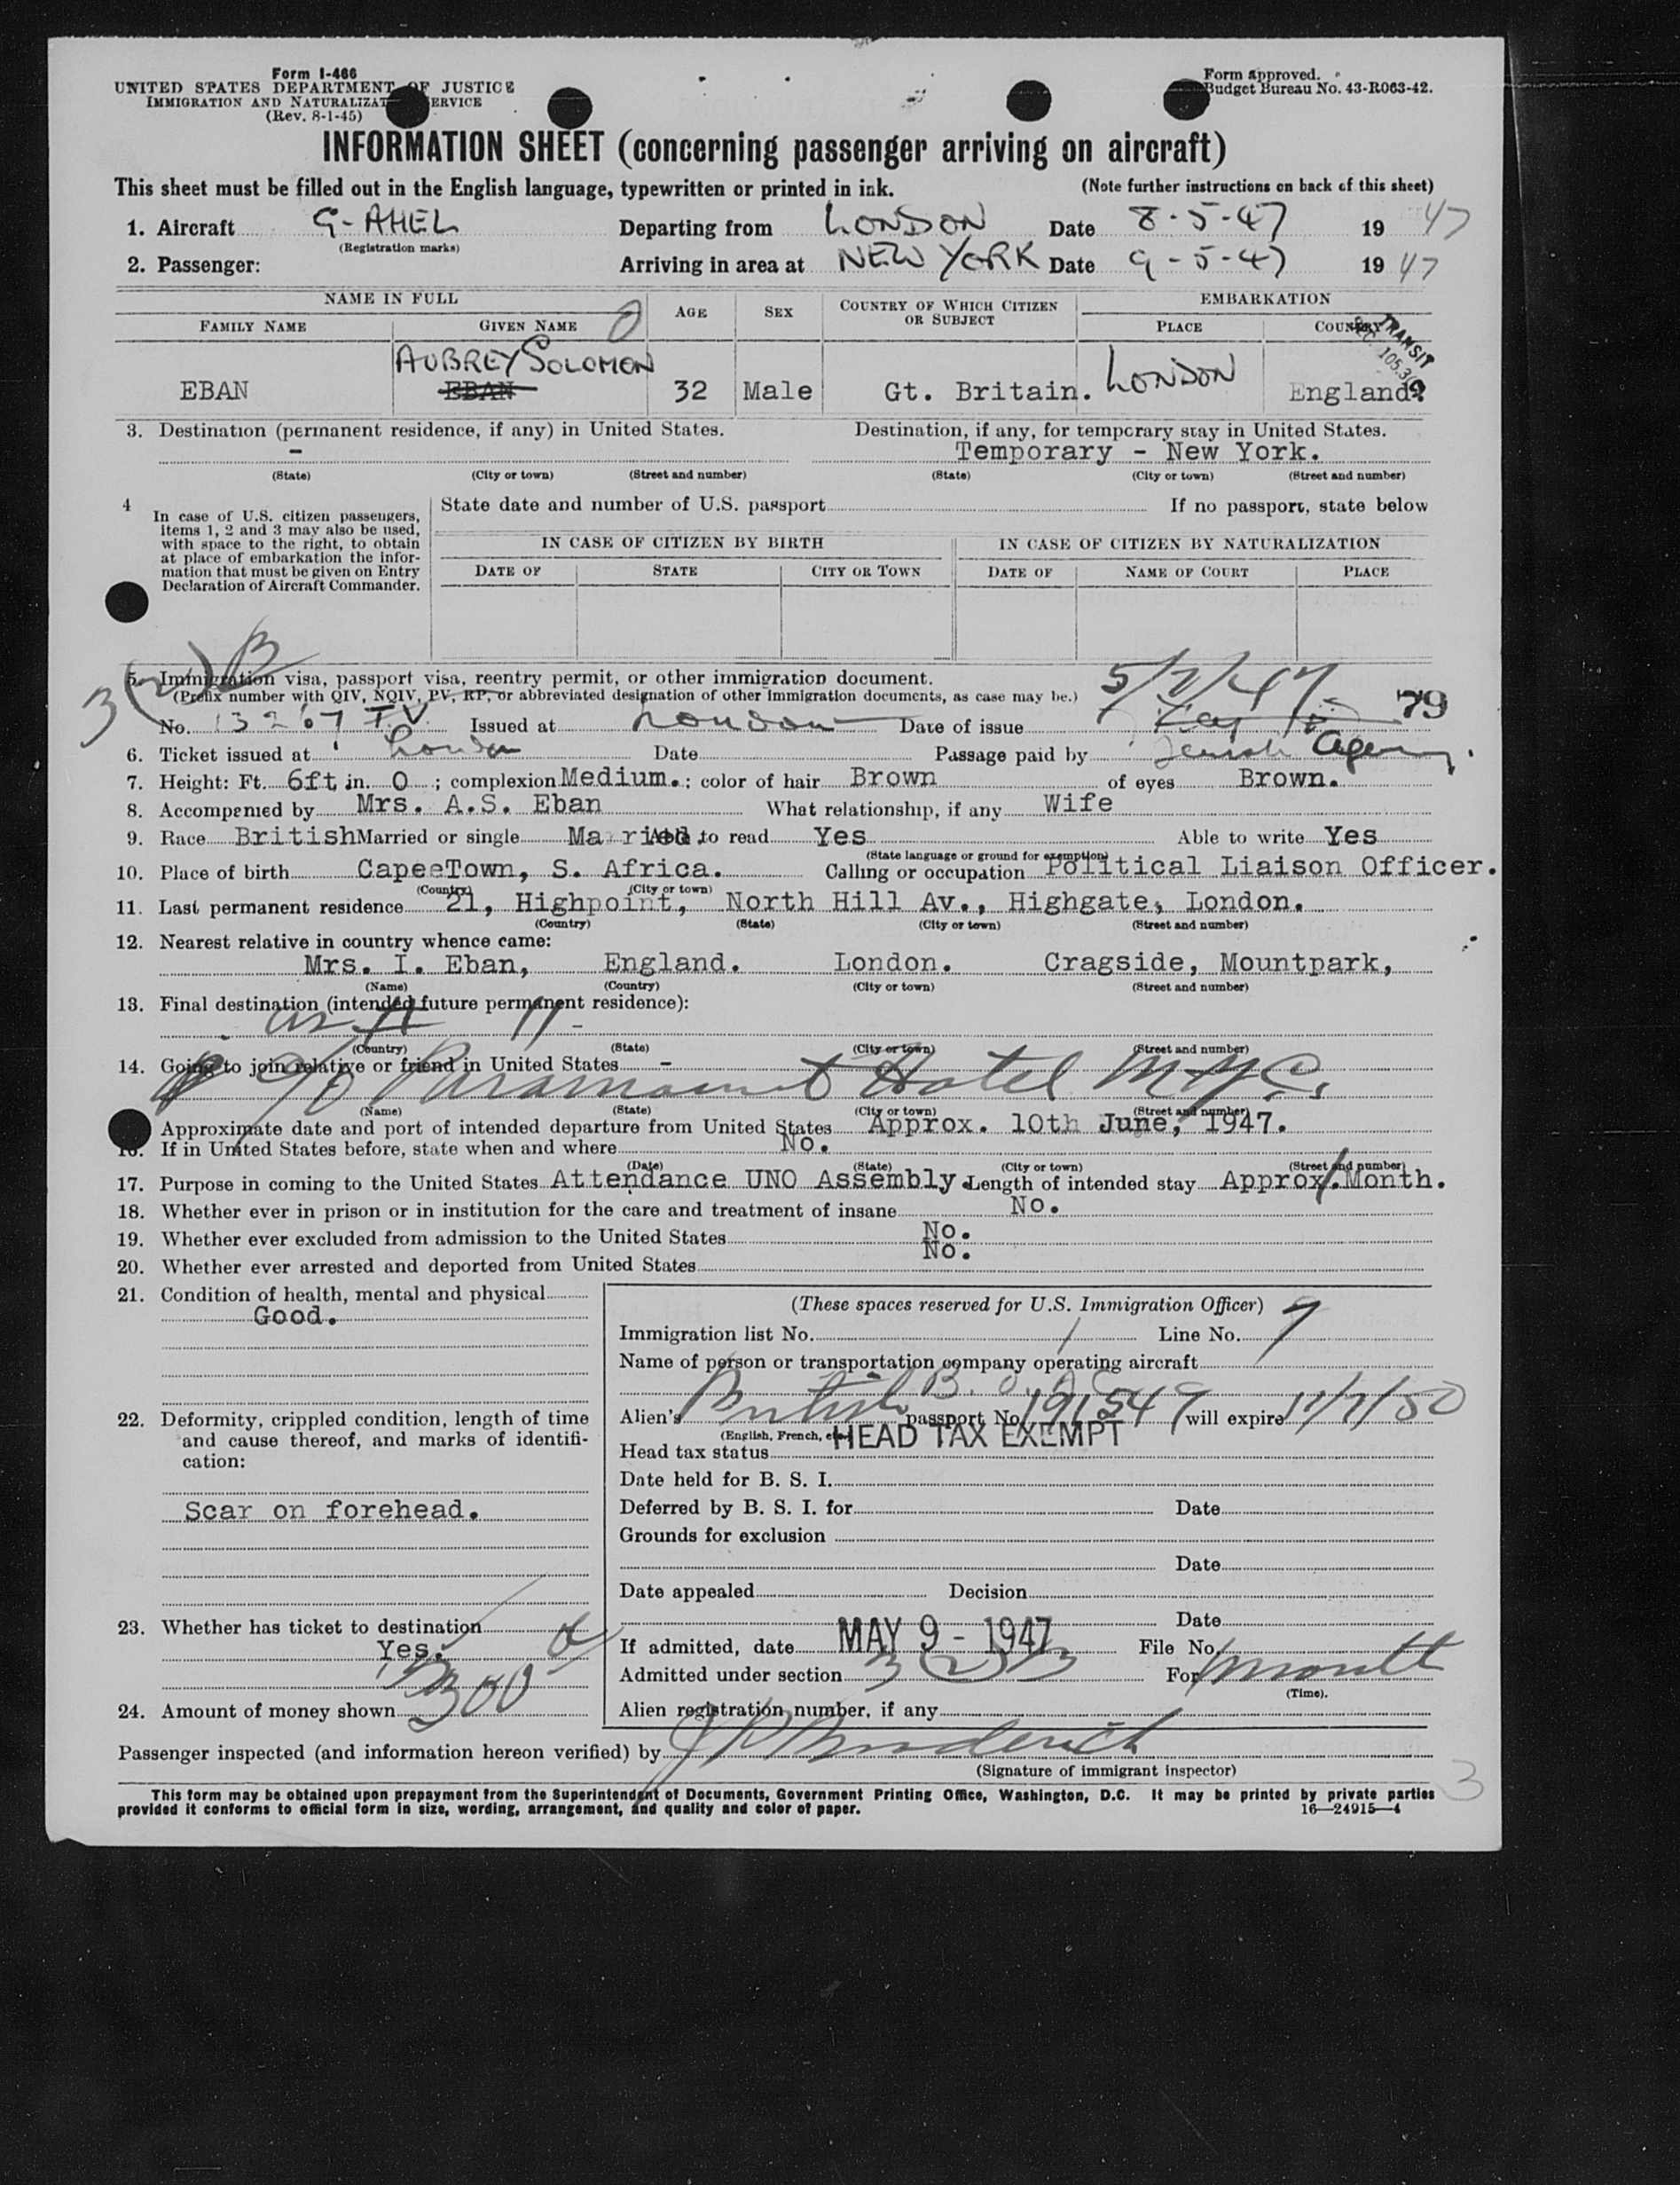 Form I-466
UNITED STATES DEPARTMENT OF JUSTICE
IMMIGRATION AND NATURALIZAT ERVICE
(Rev. 8-1-45)
Form approved.
Budget Bureau No. 43-R063-42.
INFORMATION SHEET (concerning passenger arriving on aircraft)
This sheet must be filled out in the English language, typewritten or printed in ink. (Note further instructions on back of this sheet)
1. Aircraft G-AHEL Departing from LONDON Date 8-5-47 19 47
(Registration marks)
2. Passenger: Arriving in area at NEW YORK Date 9-5-47 19 47
NAME IN FULL AGE SEX COUNTRY OF WHICH CITIZEN OR SUBJECT EMBARKATION
FAMILY NAME GIVEN NAME PLACE COUNTRY
TRANSIT
SEC. 105.3(
AUBREY SOLOMON
EBAN EBAN 32 Male Gt. Britain. LONDON England.
3. Destination (permanent residence, if any) in United States. Destination, if any, for temporary stay in United States.
- Temporary - New York.
(State) (City or town) (Street and number) (State) (City or town) (Street and number)
4 In case of U.S. citizen passengers, items 1, 2 and 3 may also be used, with space to the right, to obtain at place of embarkation the information that must be given on Entry Declaration of Aircraft Commander.
State date and number of U.S. passport If no passport, state below
IN CASE OF CITIZEN BY BIRTH IN CASE OF CITIZEN BY NATURALIZATION
DATE OF STATE CITY OR TOWN DATE OF NAME OF COURT PLACE
3(2)B
5. Immigration visa, passport visa, reentry permit, or other immigration document. 5/7/47
(Prefix number with QIV, NQIV, PV, RP, or abbreviated designation of other immigration documents, as case may be.) 79
No. Issued at London Date of issue
6. Ticket issued at London Date Passage paid by Jewish Agency.
7. Height: Ft. 6ft in. 0 ; complexion Medium. ; color of hair Brown of eyes Brown.
8. Accompanied by Mrs. A.S. Eban What relationship, if any Wife
9. Race British Married or single Married. Able to read Yes Able to write Yes
(State language or ground for exemption)
10. Place of birth CapeeTown, S. Africa. Calling or occupation Political Liaison Officer.
(Country) (City or town)
11. Last permanent residence 21, Highpoint, North Hill Av., Highgate, London.
(Country) (State) (City or town) (Street and number)
12. Nearest relative in country whence came:
Mrs. I. Eban, England. London. Cragside, Mountpark,
(Name) (Country) (City or town) (Street and number)
13. Final destination (intended future permanent residence):
as 11
(Country) (State) (City or town) (Street and number)
14. Going to join relative or friend in United States -
c/o Paramount Hotel N.Y.C.
(Name) (State) (City or town) (Street and number)
Approximate date and port of intended departure from United States Approx. 10th June, 1947.
16. If in United States before, state when and where No.
(Date) (State) (City or town) (Street and number)
17. Purpose in coming to the United States Attendance UNO Assembly. Length of intended stay Approx. 1 Month.
18. Whether ever in prison or in institution for the care and treatment of insane No.
19. Whether ever excluded from admission to the United States No.
20. Whether ever arrested and deported from United States No.
21. Condition of health, mental and physical
Good.
22. Deformity, crippled condition, length of time and cause thereof, and marks of identification:
Scar on forehead.
23. Whether has ticket to destination
Yes.
24. Amount of money shown 300
(These spaces reserved for U.S. Immigration Officer)
Immigration list No. 1 Line No. 7
Name of person or transportation company operating aircraft
B.O.A.C.
Alien's British passport No. 191549 will expire 11/7/50
(English, French, etc.)
Head tax status HEAD TAX EXEMPT
Date held for B. S. I.
Deferred by B. S. I. for Date
Grounds for exclusion
Date
Date appealed Decision
Date
If admitted, date MAY 9 - 1947 File No.
Admitted under section 3(2)B For 1 month
(Time).
Alien registration number, if any
Passenger inspected (and information hereon verified) by
(Signature of immigrant inspector)
3
This form may be obtained upon prepayment from the Superintendent of Documents, Government Printing Office, Washington, D.C. It may be printed by private parties
provided it conforms to official form in size, wording, arrangement, and quality and color of paper. 16—24915—4